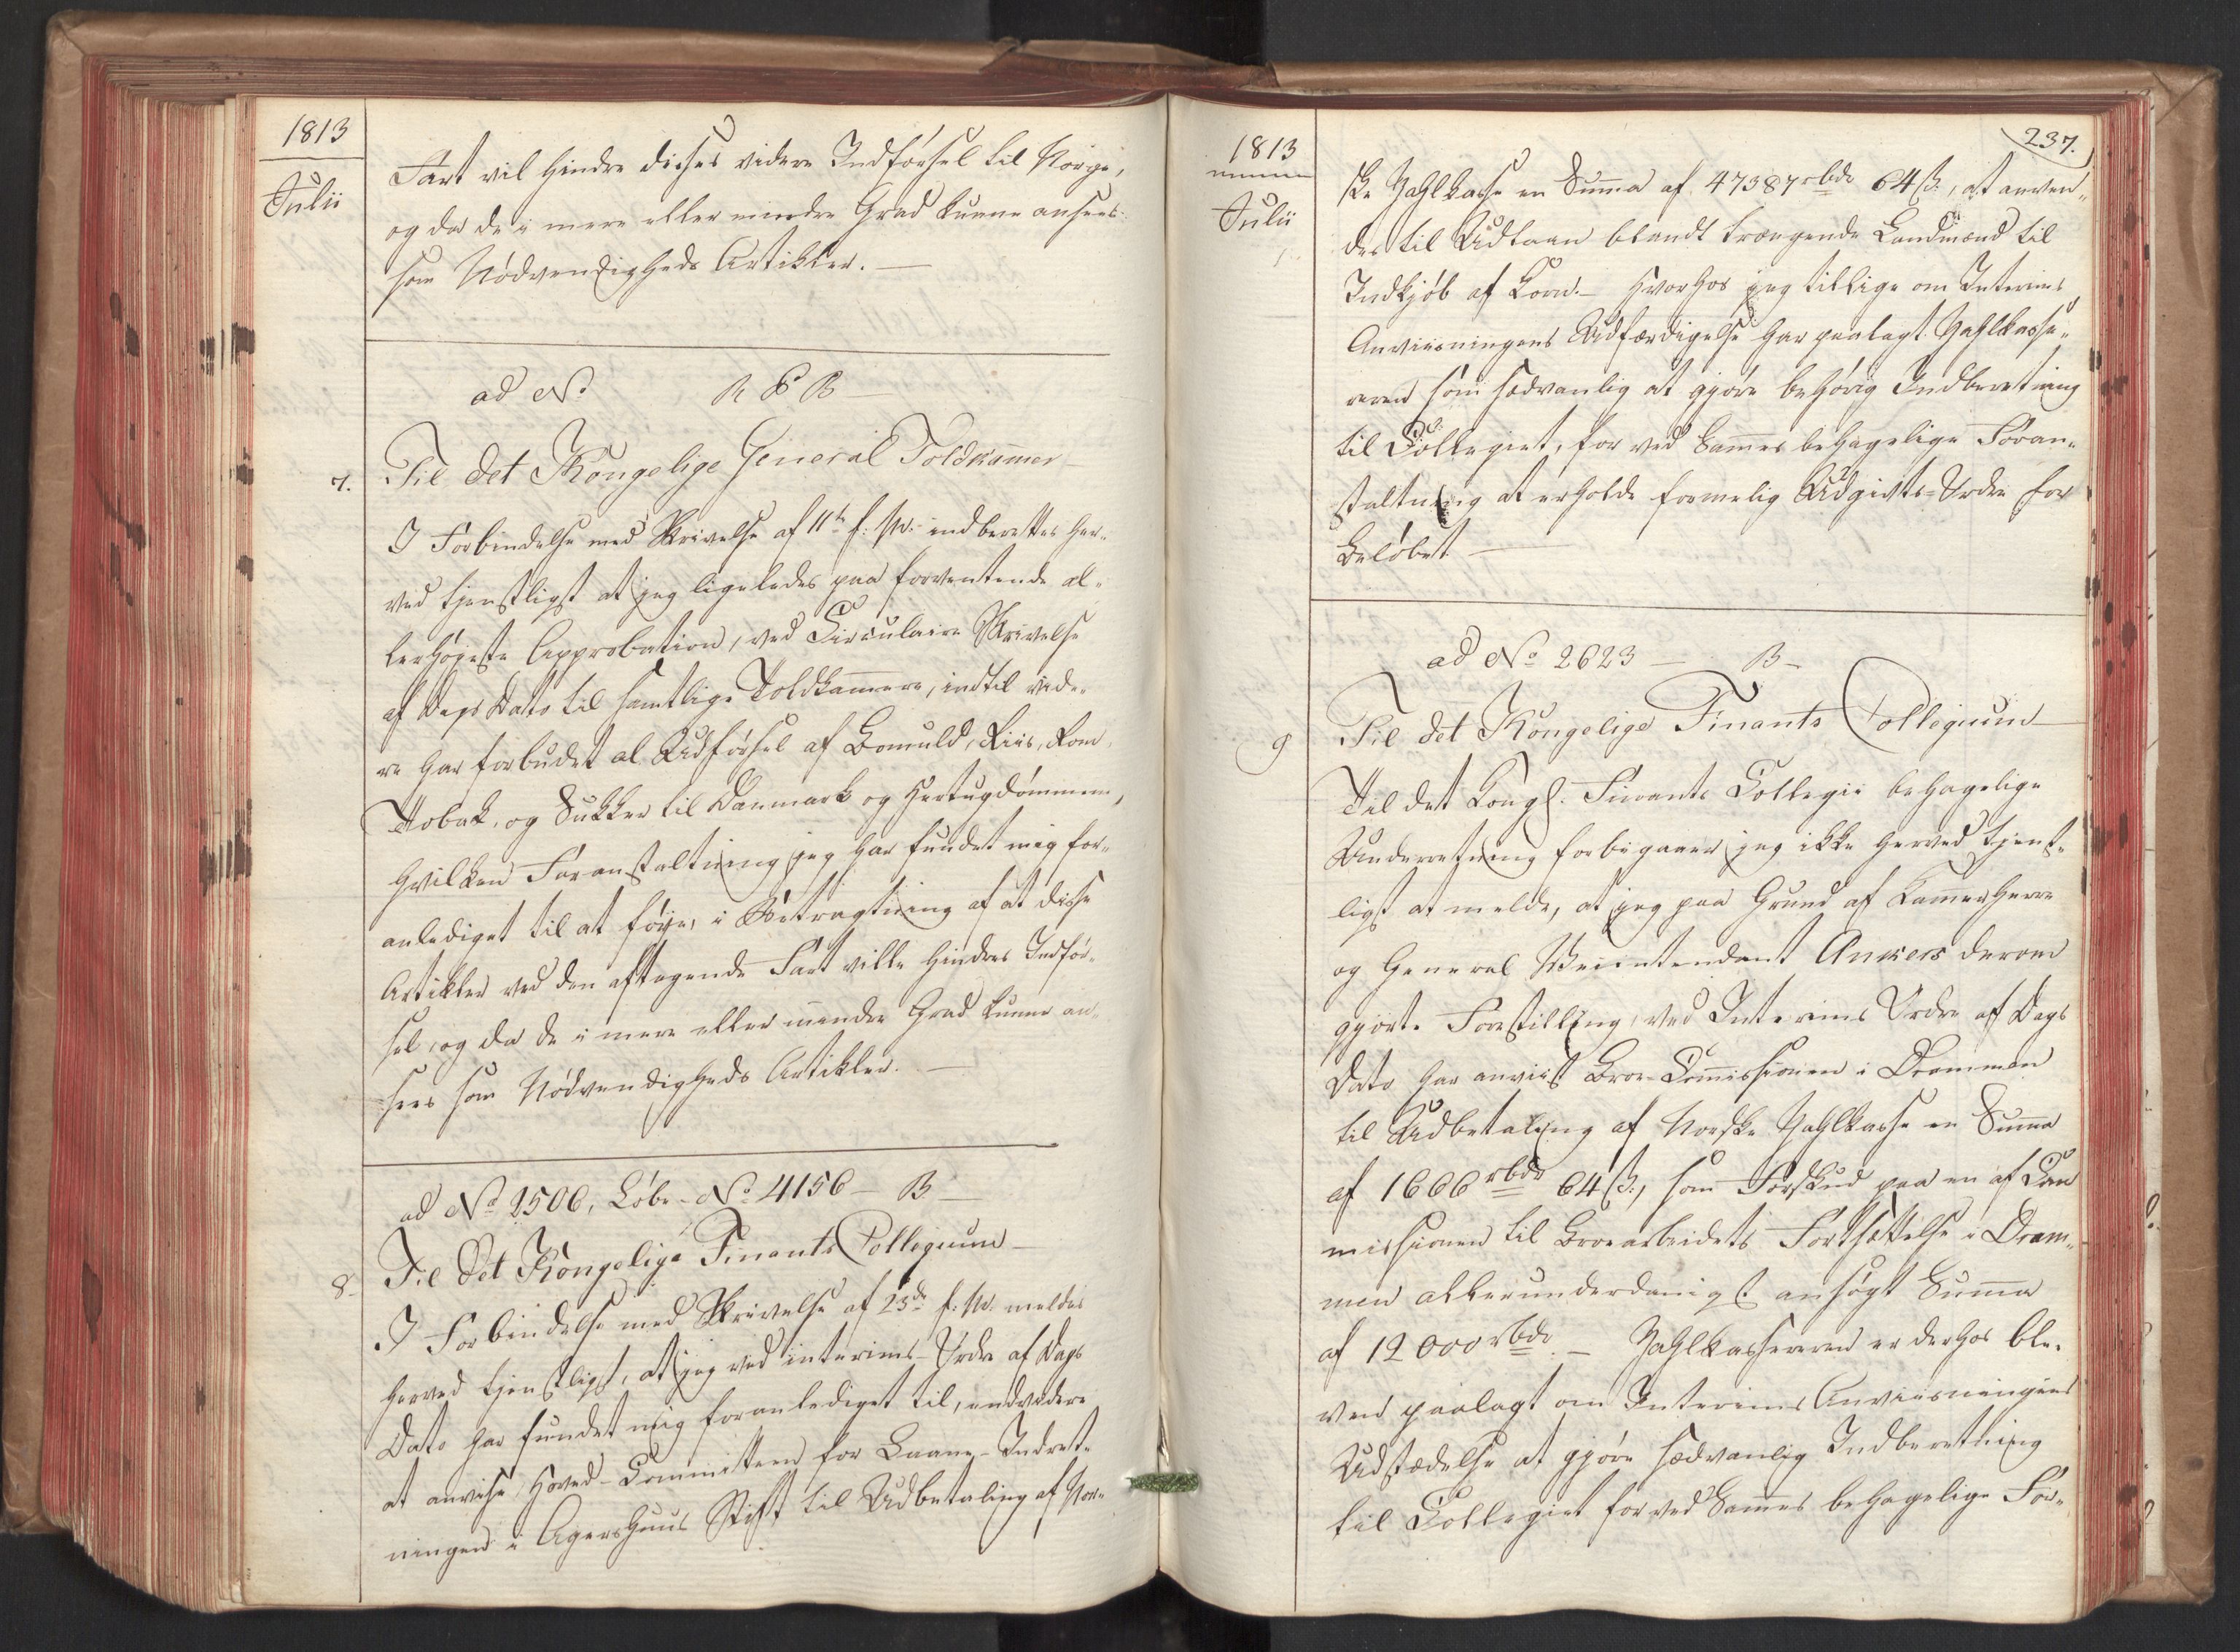 1813
Julii
Fart vil hindre disses videre Indførsel til Norge,
og da de i mere eller mindre Grad kunne ansees
som Nødvendigheds Artikler. —
ad No R & B —
7. Til det Kongelige General Toldkammer —
I Forbindelse med Skrivelse af 11te f: M: indberettes her-
ved tjenstligst at jeg ligeledes paa forventende al-
lerhøjeste Approbation, ved Circulaire Skrivelse
af Dags Dato til samtlige Toldkamere, indtil vide-
re har forbudet al Udførsel af Bomuld, Riis, Rom,
Tobak, og Sukker til Danmark og Hertugdømmene,
hvilken Foranstaltning jeg har fundet mig for-
anlediget til at føje, i Betragtning af at disse
Artikler ved den aftagende Fart ville hindres Indfør-
sel, og da de i mere eller mindre Grad kunne an-
sees som Nødvendigheds Artikler. —
ad No 2506, Løbe-No 4156 — B —
8. Til Det Kongelige Finants Collegium —
I Forbindelse med Skrivelse af 23de f: M: meldes
herved tjenstligst, at jeg ved interims-Ordre af Dags
Dato har fundet mig foranlediget til, endvidere
at anvise Hoved-Committeen for Laane-Indret-
ningen i Agershuus Stift til Udbetaling af Nor-
1813
Julii
237.
ske Zahlkasse en Summa af 47387 rbdr 64 ß:, at anven-
des til Udlaan blandt trængende Landmænd til
Indkjøb af Korn. — Hvorhos jeg tillige om Interims
Anviisningens Udfærdigelse har paalagt Zahlkasse-
reren som sædvanlig at gjøre behørig Indberetning
til Collegiet, for ved Sammes behagelige Foran-
staltning at erholde formelig Udgivts-Ordre for
Beløbet —
ad No 2623 — B —
9 Til det Kongelige Finants Collegium —
Til det Kongl. Finants Collegii behagelige
Underretning forbigaaer jeg ikke herved tjenst-
ligst at melde, at jeg paa Grund af Kammerherre
og General Veiintendant Ankers derom
gjorte Forestilling, ved Interims Ordre af Dags
Dato har anviist Broe-Commissionen i Drammen
til Udbetaling af Norske Zahlkasse en Summa
af 1666 rbdr 64 ß:, som Forskud paa en af Com
missionen til Broearbeidets Fortsættelse i Dram-
men allerunderdanigst ansøgt Summa
af 12000 rbdr. — Zahlkassereren er derhos ble-
ven paalagt om Interims Anviisningens
Udstædelse at gjøre sædvanlig Indberetning
til Collegiet for ved Sammes behagelige For-